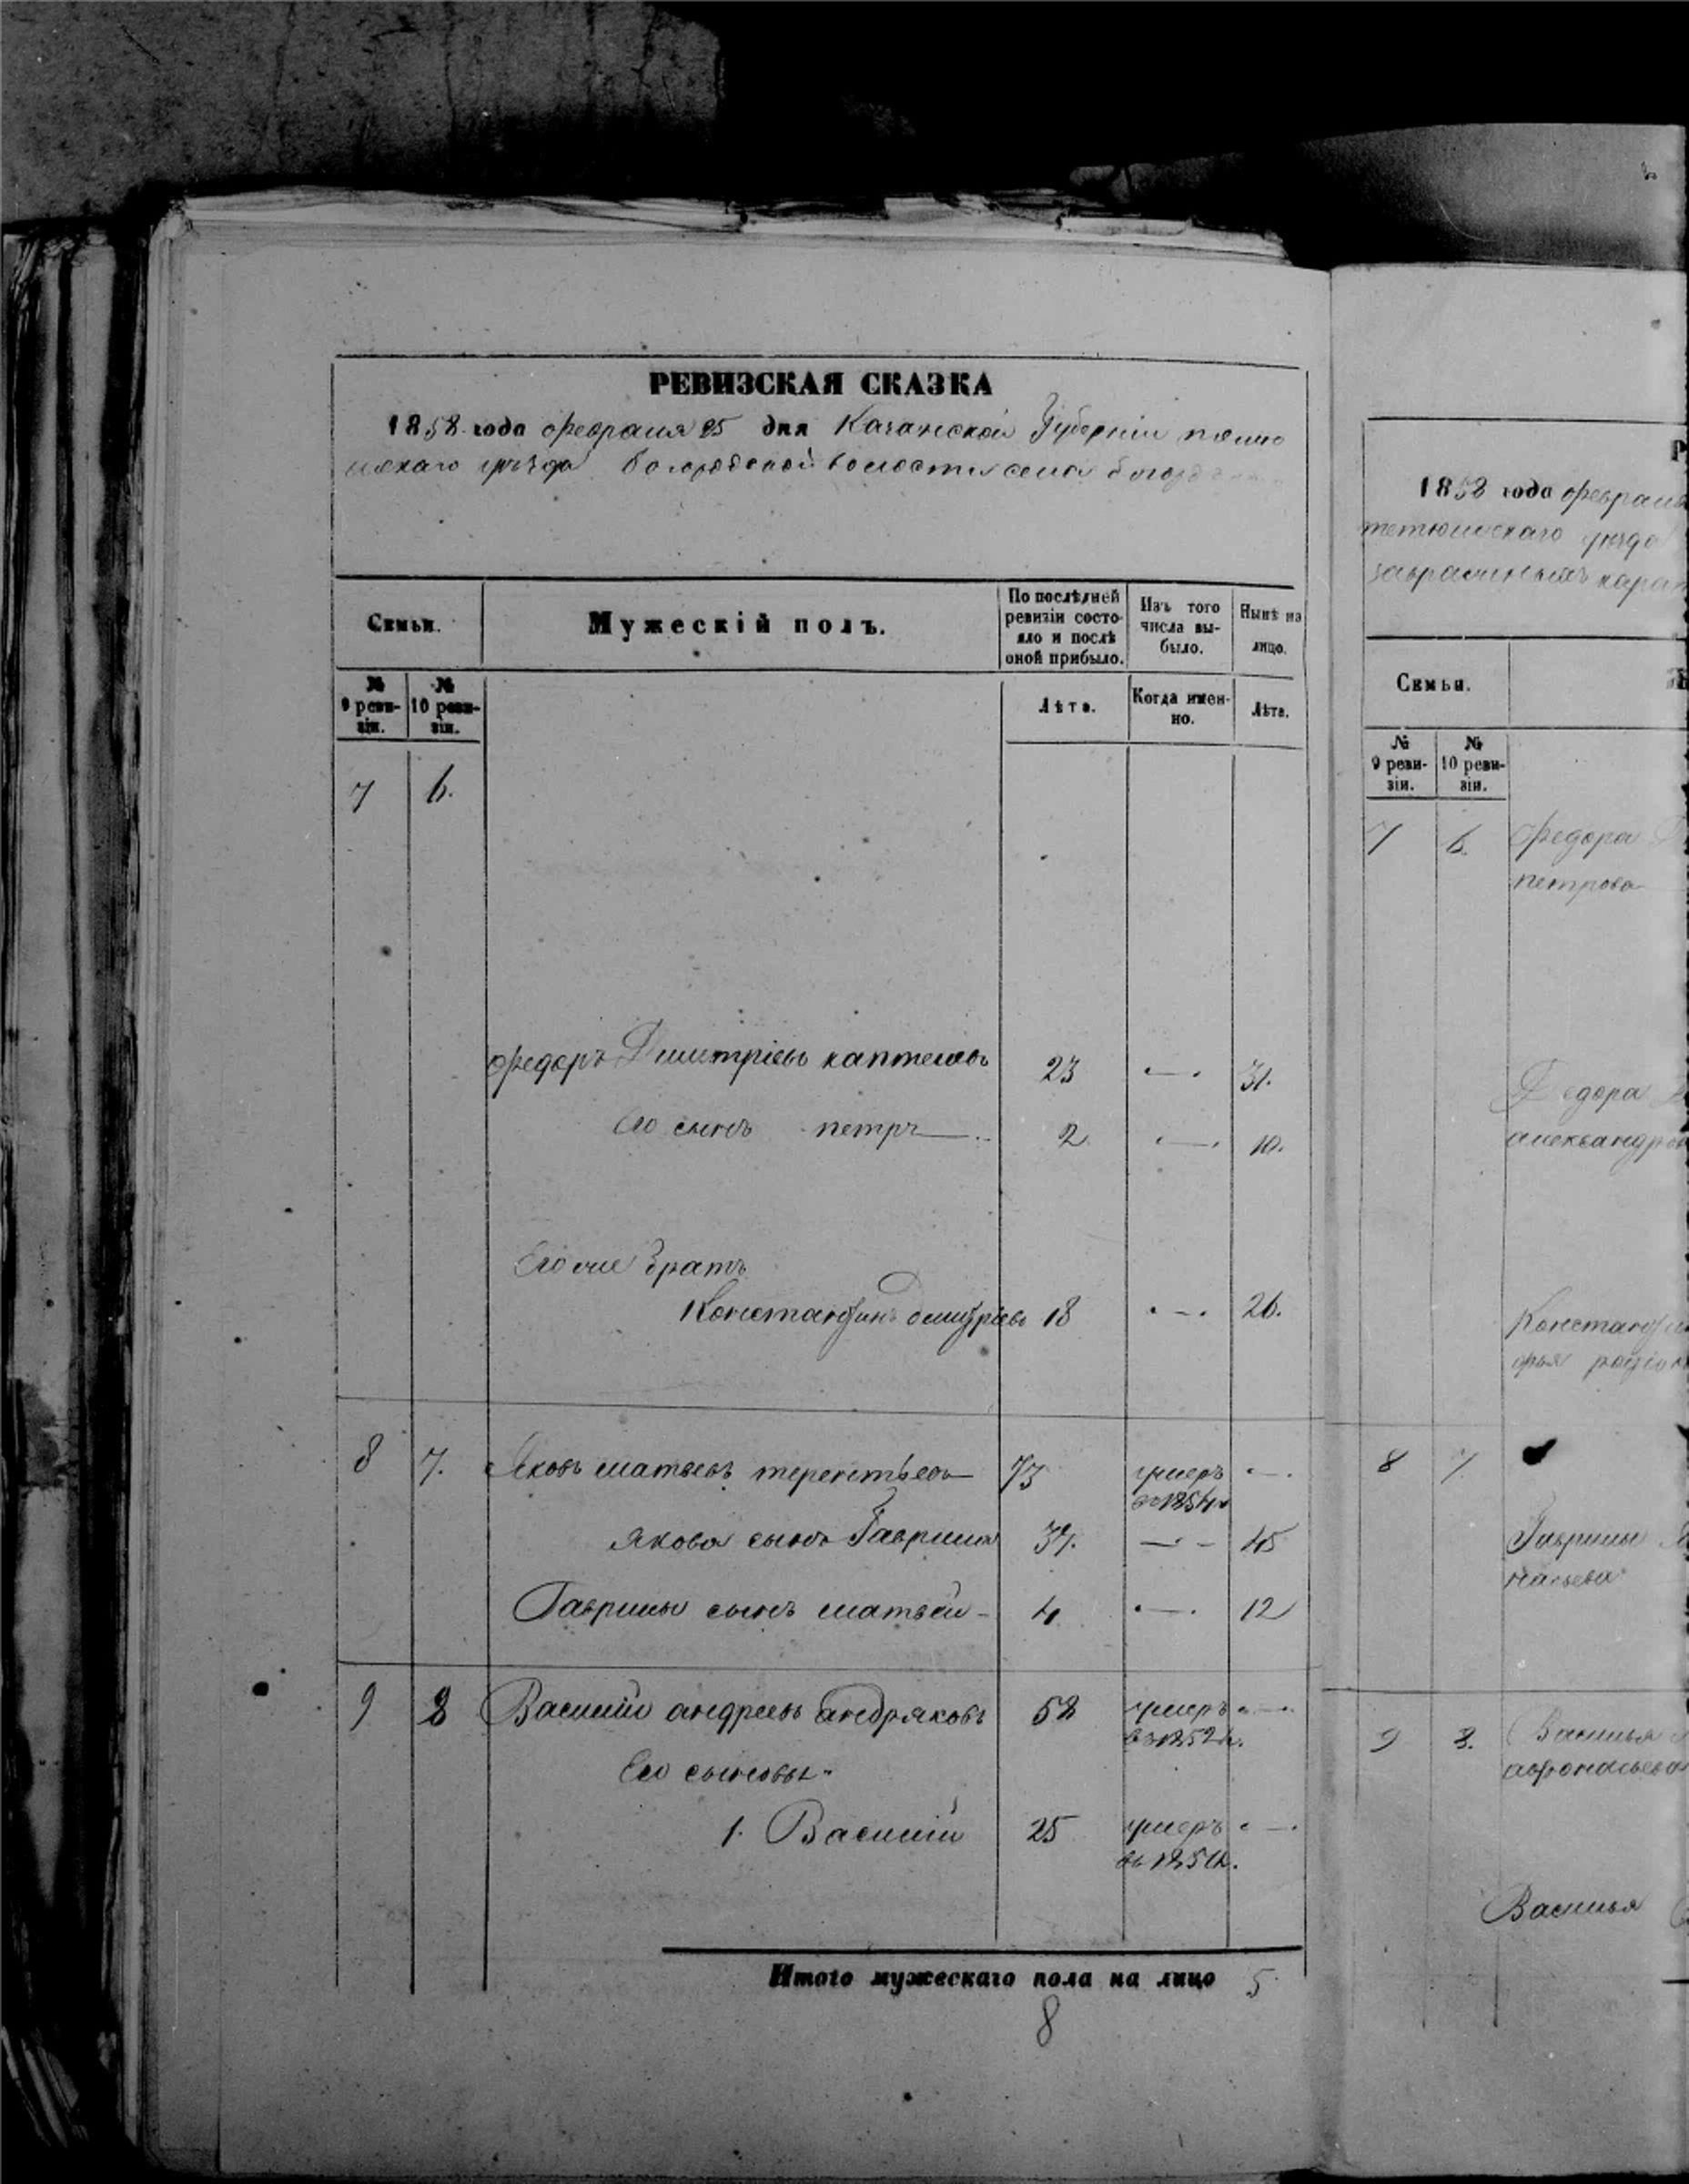 РЕВИЗСКАЯ СКАЗКА
1858 года февраля 25 дня Казанской Губерніи
уѣзда волости села
Семьи.
Мужескій полъ.
По послѣдней ревизіи состо-
яло и послѣ
оной прибыло.
Изъ того
числа вы-
было.
Нынѣ на
лицо.
№
9 реви-
зіи.
№
10 реви-
зіи.
Лѣта.
Когда имен-
но.
Лѣта.
7 6.
Федоръ Дмитріевъ 23 31.
Его сынъ петръ 2 10.
Его же братъ
Константинъ дмитріевъ 18 26.
8 7. Яковъ матвѣевъ терентьевъ 73 умеръ
въ 1854
Якова сынъ Гаврила 37. 45
Гаврилы сынъ матвѣй 4 12
9 8 Василій андреевъ андряковъ 58 умеръ
въ 1852
Его сыновья
1. Василій 25 умеръ
въ
Итого мужескаго пола на лицо 5
8
1858 года февраля
тетюшскаго уѣзда
Семьи.
№
9 реви-
зіи.
№
10 реви-
зіи.
7 6. Федора
петрова
Федора
александров
8 7
Гаврилы
9 8. Василья
афонасьева
Василья